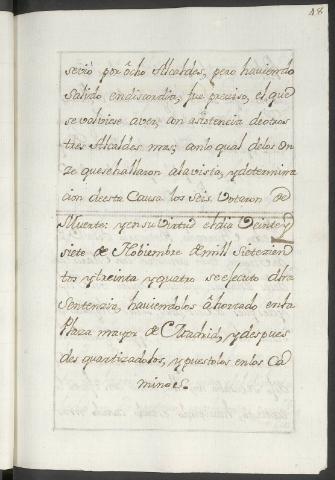 48.
se vió por ôcho Alcaldes, pero haviendo
Salido en discordia, fue preciso, el que
se volviese aver, con asistencia de otros
tres Alcaldes mas; con lo qual de los On
ze que se hallaron a la vista, y determina
cion de esta Causa los seis Votaron de
Muerte: y en su Virtud el dia Veinte y
siete de Nobiembre de mill Setezien
tos y treinta y quatro se ejecuto dha
Sentenzia, haviendolos âhorcado en la
Plaza mayor de Madrid, y despues
des quartizadolos, y puestolos en los Ca
minos.